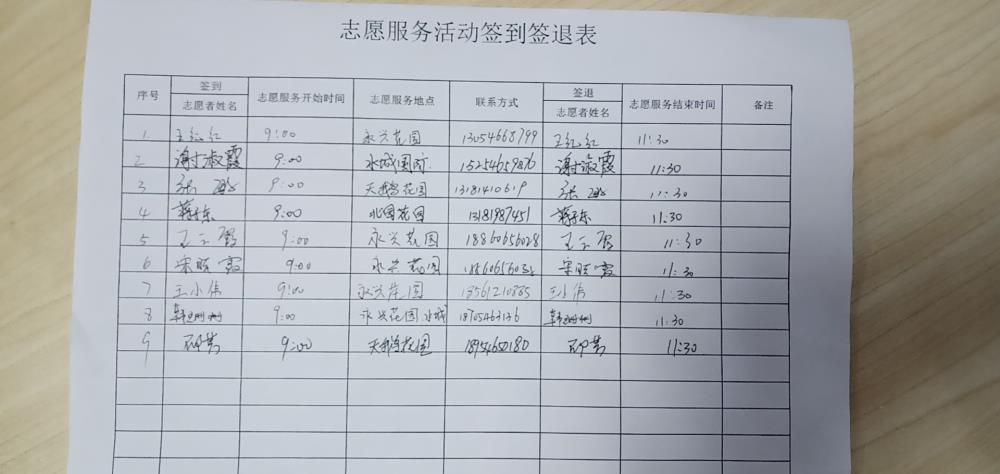 志愿服务活动签到签退表
序号 签到 志愿服务开始时间 志愿服务地点 联系方式 签退 志愿服务结束时间 备注
志愿者姓名 志愿者姓名
1 王红红 9:00 永兴花园 13054668799 王红红 11:30
2 谢淑霞 9:00 水城国际 15254659876 谢淑霞 11:30
3 张 9:00 天鹅花园 13181410619 张 11:30
4 蒋 9:00 花园 13181987451 蒋 11:30
5 王 9:00 永兴花园 18860656028 王 11:30
6 宋晓霞 9:00 永兴花园 宋晓霞 11:30
7 王小伟 9:00 永兴花园 18561210885 王小伟 11:30
8 韩珊珊 9:00 永兴花园 水城 韩珊珊 11:30
9 9:00 天鹅花园 11:30